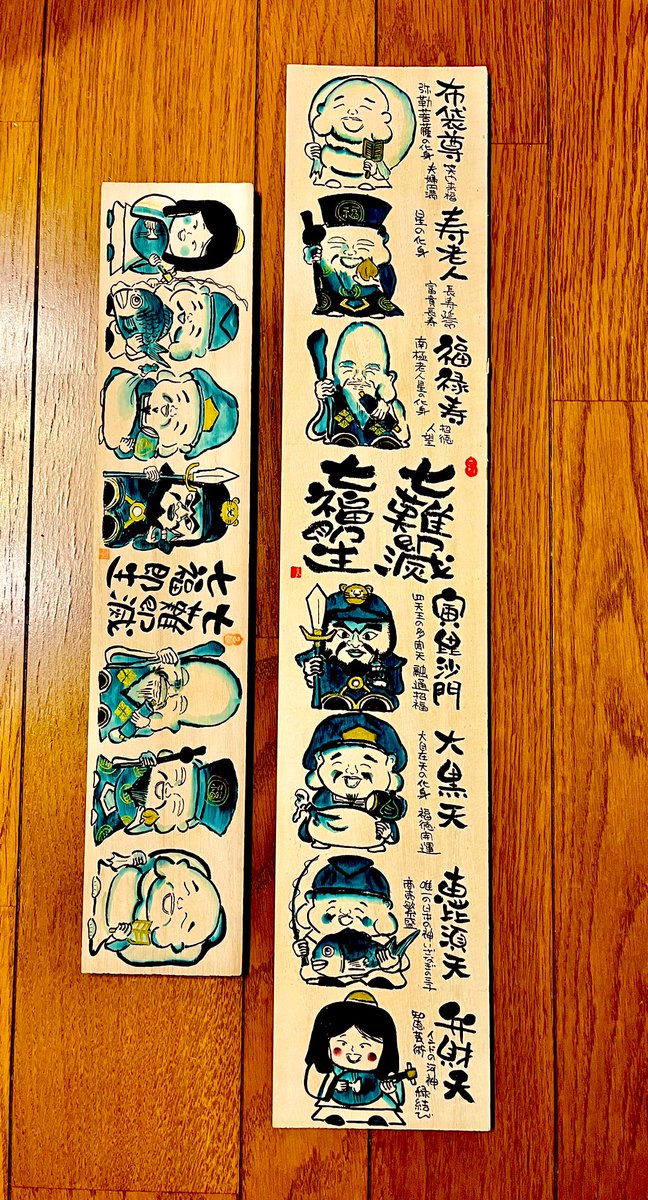 布袋尊
弥勒菩薩の化身 夫婦円満
寿老人
星の化身 長寿延命
富貴長寿
福禄寿
南極老人星の化身 招徳
人望
七難即滅
七福即生
寅毘沙門
四天王の多聞天 融通招福
大黒天
大自在天の化身 福徳開運
恵比須天
唯一の日本の神
商売繁盛
弁財天
インドの河神 縁結び
知恵芸術
福
七難即滅
七福即生
福